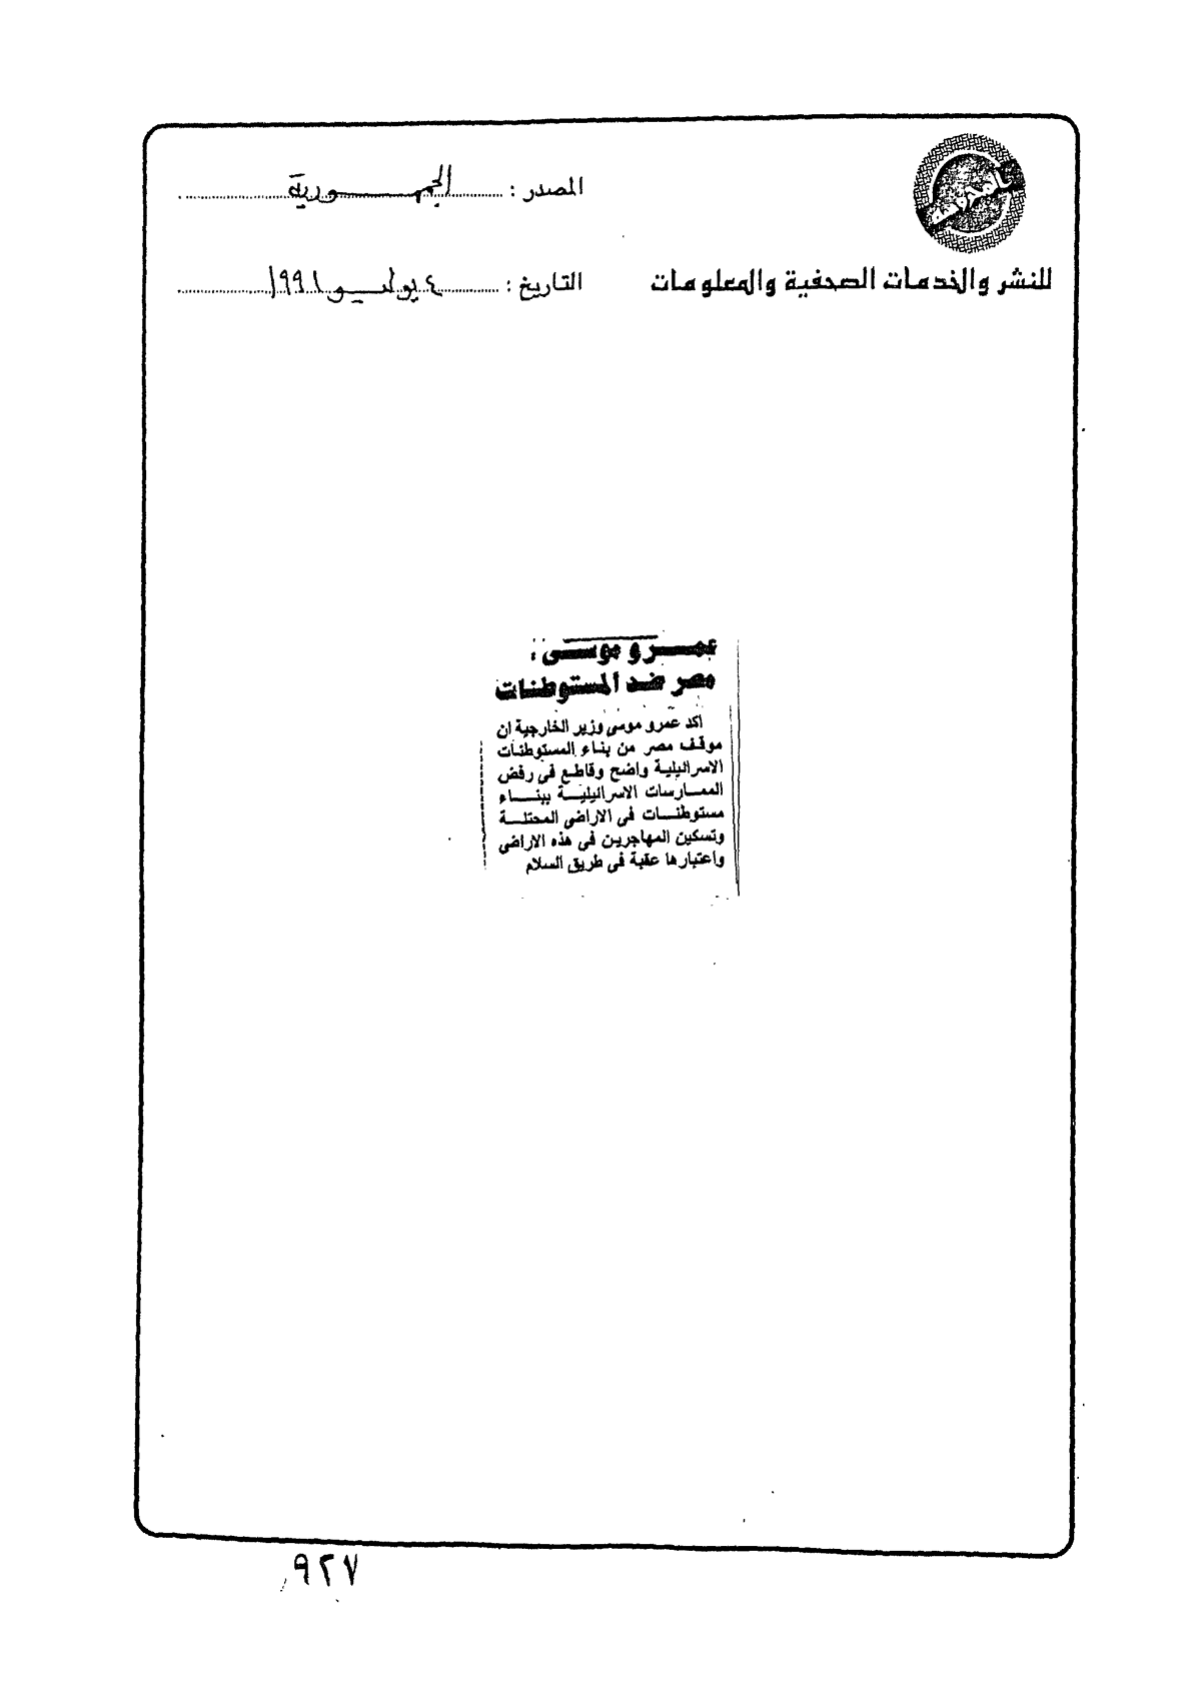 المصدر : الجمهورية
للنشر والخدمات الصحفية والمعلومات
التاريخ : ٤ يوليو ١٩٩١
عمرو موسى :
مصر ضد المستوطنات
اكد عمرو موسى وزير الخارجية ان
موقف مصر من بناء المستوطنات
الاسرائيلية واضح وقاطع فى رفض
الممارسات الاسرائيلية ببناء
مستوطنات فى الاراضى المحتلة
وتسكين المهاجرين فى هذه الاراضى
واعتبارها عقبة فى طريق السلام
٩٢٧